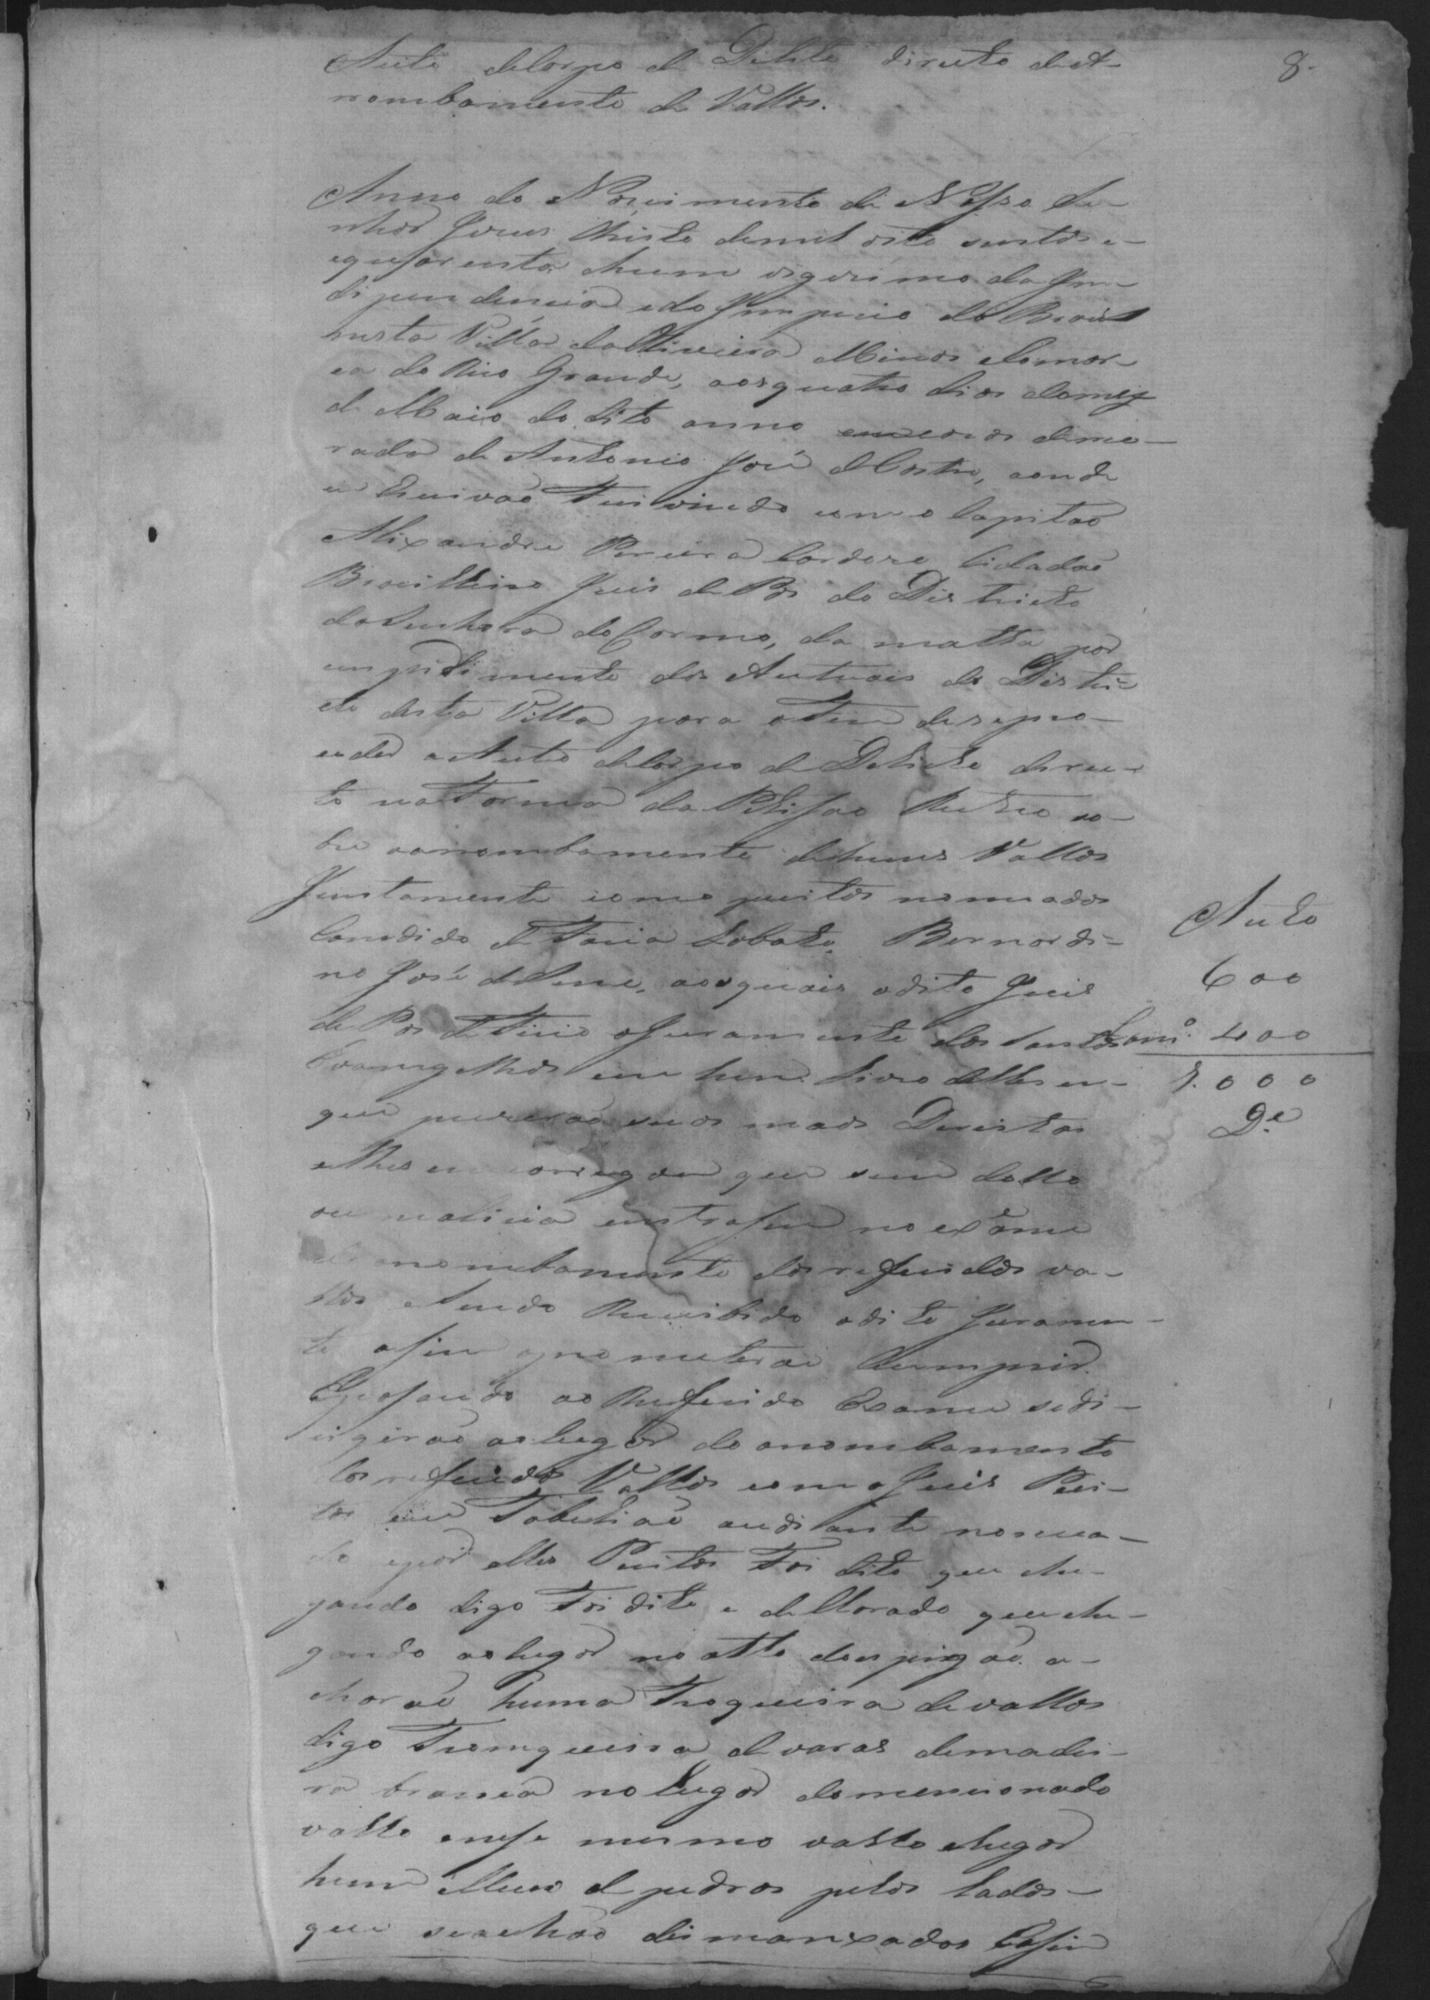 8.
Auto deCorpo de Delito directo deAr-
rombamento de Vallos.
Anno do Nascimento de Nosso Se-
nhor Jesus Christo demil oito centos e
equarenta ehum vigesimo da Jn-
dipendencia edo Jmperio do Brasil
nesta Villa daOliveira Minas Comar-
ca do Rio Grande, aosquatro dias domez
de Maio do dito anno em casas demo-
rada de Antonio José deCastro, aonde
eu Escrivaõ Fui vindo com o Capitaõ
Alixandre Pereira Cardozo Cidadaõ
Brasilleiro Juis de Pás do Districto
daSenhora doCarmo, da matta por
impidimento dos Autuais do Distri-
cto desta Villa para oFim deseproc-
eder aAuto deCorpo de Delicto direc-
to naForma da Petiçaõ Retro so-
bre oarrombamento dehuns Vallos
Juntamente com os peritos nomiados
Candido de Faria Lobato, Bernardi-
no José deSene, aosquais odito Juis
de Pás deFirio oJuramento dos Santos
Evangelhos em hum Livro delles em
que puzeraõ suas maõs Direitas
elhes encarregou que sem dollo
ou malicia entrassem noexâme
do arrombamento dos referidos va-
llos, eSendo Recibido odito Juramen-
to assim oprometeraõ Cumprir.
Epassando ao Referido Exame sedi-
rigiraõ aolugar do arrombamento
dos referidos Vallos com o Juis Peri-
tos eeu Tabeliaõ audiante nomia-
do epor elles Peritos Foi dito que che-
gando digo Foi dito e declarado queche-
gando aolugar no alto do espigaõ a-
charaõ huma Troqueira devallos
digo Tronqueira de varas demadei-
ra branca nolugar domencionado
vallo enesse mesmo vallo chegar
hum Muro de pedras pelos lados
que seachaõ desmanxados Assim
Auto
600
Cam.º 400
1.000
D.e